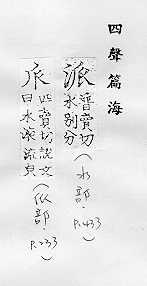 四聲篇海
派 普賣切
水別分(水部.P.433)
𠂢 匹賣切說文
曰水𣲖流皃(𠂢部.P.233)